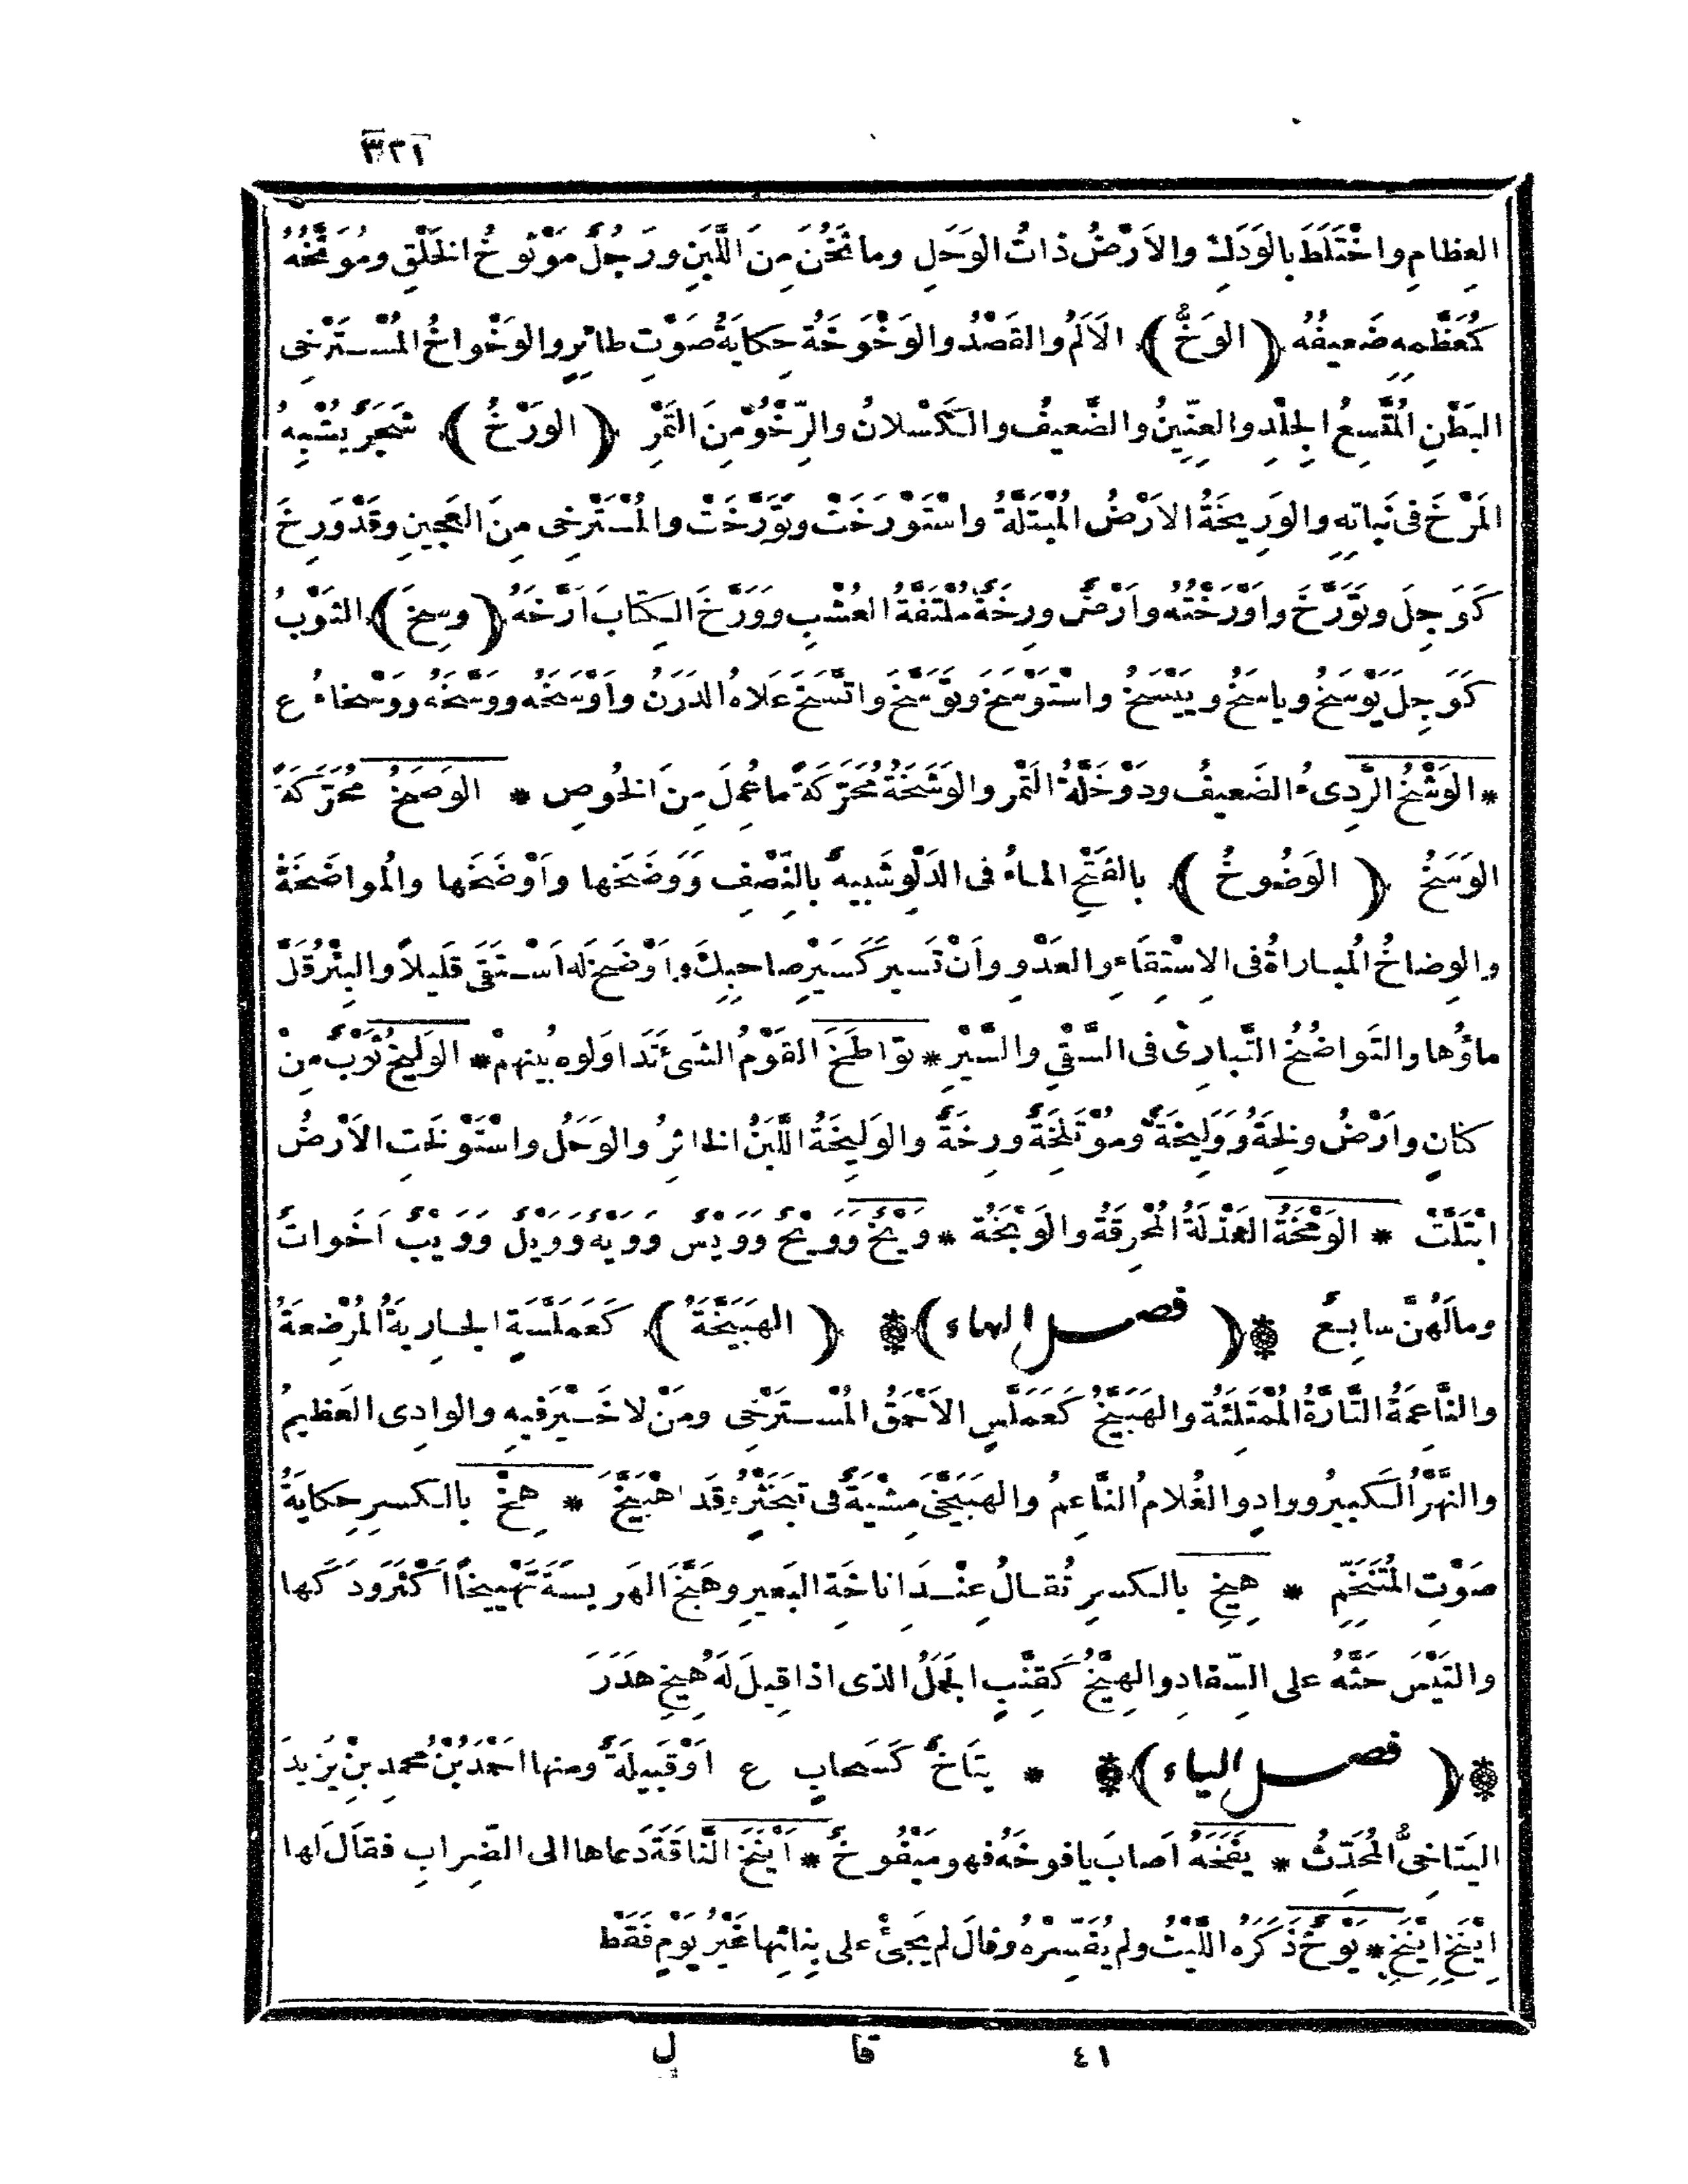 ٣٢١
العِظامِ واخْتَلَطَ بالوَدَكِ والاَرْضُ ذاتُ الوَحَلِ وما ثَخُنَ مِنَ اللَّبَنِ ورَجُلٌ مَوْثوخُ الخَلْقِ ومُوَثَّخُهُ
كمُعَظَّمِه ضَعيفُهُ ﴿الوَخُّ﴾ الاَلَمُ والقَصْدُ والوَخْوَخَةُ حِكايَةُ صَوْتِ طائِرٍ والوَخْواخُ المُسْتَرْخى
البَطْنِ المُتَّسِعُ الجِلْدِ والعِنِّينُ والضَّعيفُ والكَسْلانُ والرِّخْوُ مِنَ التَّمْرِ ﴿الوَرْخُ﴾ شَجَرٌ يُشْبِهُ
المَرْخَ فى نَباتِهِ والوَرِيخَةُ الاَرْضُ المُبْتَلَّةُ واسْتَوْرَخَتْ وتَوَرَّخَتْ والمُسْتَرْخى مِنَ العَجينِ وقَدْ وَرِخَ
كَوَجِلَ وتَوَرَّخَ واَوْرَخْتُه واَرْضٌ ورِخَةٌ مُلْتَفَّةُ العُشْبِ ووَرَّخَ الكِتابَ اَرَّخَهُ ﴿وسِخَ﴾ الثَوْبُ
كَوَجِلَ يَوْسَخُ وياسَخُ ويَيْسَخُ واسْتَوْسَخَ وتَوَسَّخَ واتَّسَخَ عَلاهُ الدَرَنُ واَوْسَخَه ووَسَّخَهُ ووَسْخاءُ ع
* الوَشْخُ الرَّدِىءُ الضَعيفُ ودَوْخَلَّةُ التَمْرِ والوَشَخَةُ مُحَرَّكَةً ما عُمِلَ مِنَ الخُوصِ * الوَصَخُ مُحَرَّكَةً
الوَسَخُ ﴿الوَضُوخُ﴾ بالفَتْحِ الماءُ فى الدَلْوِ شَبيهٌ بالنِّصْفِ ووَضَخَها واَوْضَخَها والمُواضَخَةُ
والوِضاخُ المُباراةُ فى الاِسْتِقاءِ والعَدْوِ واَنْ تَسيرَ كَسَيْرِ صاحِبِكَ واَوْضَخَ لَه اسْتَقَى قَليلاً والبِئْرُ قَلَّ
ماؤُها والتَواضُخُ التَّبارِى فى السَّقْىِ والسَّيْرِ * تَواطَخَ القَوْمُ الشَىءَ تَدَاوَلوه بَيْنهمْ * الوَليخُ ثَوْبٌ مِنْ
كتانٍ واَرْضٌ ولِخَةٌ ووَلِيخَةٌ ومُؤْتَلِخَةٌ ورِخَةٌ والوَلِيخَةُ اللَّبَنُ الخاثِرُ والوَحَلُ واسْتَوْلَخَتِ الاَرْضُ
ابْتَلَّتْ * الوَمْخَةُ العَذْلَةُ المُحْرِقَةُ والوَبْخَةُ * وَيْخٌ ووَيْحٌ ووَيْسٌ ووَيْهٌ ووَيْلٌ ووَيْبٌ اَخَواتٌ
ومالَهُنَّ سابِعٌ ﴿فصل الهاء﴾ ﴿الهَبَيَّخَةُ﴾ كَعَمَلَّسَةٍ الجارِيَةُ المُرْضِعَةُ
والنَّاعِمَةُ التَّارَّةُ المُمْتَلِئَةُ والهَبَيَّخُ كَعَمَلَّسٍ الاَحْمَقُ المُسْتَرْخى ومَنْ لا خَيْرَ فيهِ والوادِى العَظيمُ
والنَهْرُ الكَبيرُ ووادٍ والغُلامُ النَّاعِمُ والهَبَيَّخَى مِشْيَةٌ فى تَبَخْتُرٍ وقَد اهْبَيَّخَ * هِخْ بالكسرِ حِكايَةُ
صَوْتِ المُتَنَخِّمِ * هِيخِ بالكسرِ تُقالُ عِنْدَ اناخَةِ البَعيرِ وهَيَّخَ الهَريسَةَ تَهْييخاً اَكْثَرَ ودَكَها
والتَيْسَ حَثَّهُ على السِّفادِ والهِيَّخُ كَقِنَّبٍ الجَمَلُ الذى اذا قِيلَ لَهُ هِيخِ هَدَرَ
﴿فصل الياء﴾ * يَتَاخٌ كَسَحابٍ ع اَوْ قَبيلَةٌ ومنها احْمَدُ بْنُ مُحمدِ بنِ يَزيدَ
اليَتَاخِىُّ المُحَدِّثُ * يَفَخَهُ اَصابَ يافوخَهُ فهو مَيْفُوخٌ * اَيْنَخَ النَّاقَةَ دَعاها الى الضِّرابِ فقالَ لَها
اِيْنَخِ اِيْنَخِ * يَوْخٌ ذَكَرَه اللَّيْثُ ولم يُفَسِّرْهُ وقالَ لم يَجِئْ على بِنائِها غَيْرُ يَوْمٍ فَقَطْ
٤١ قا ل